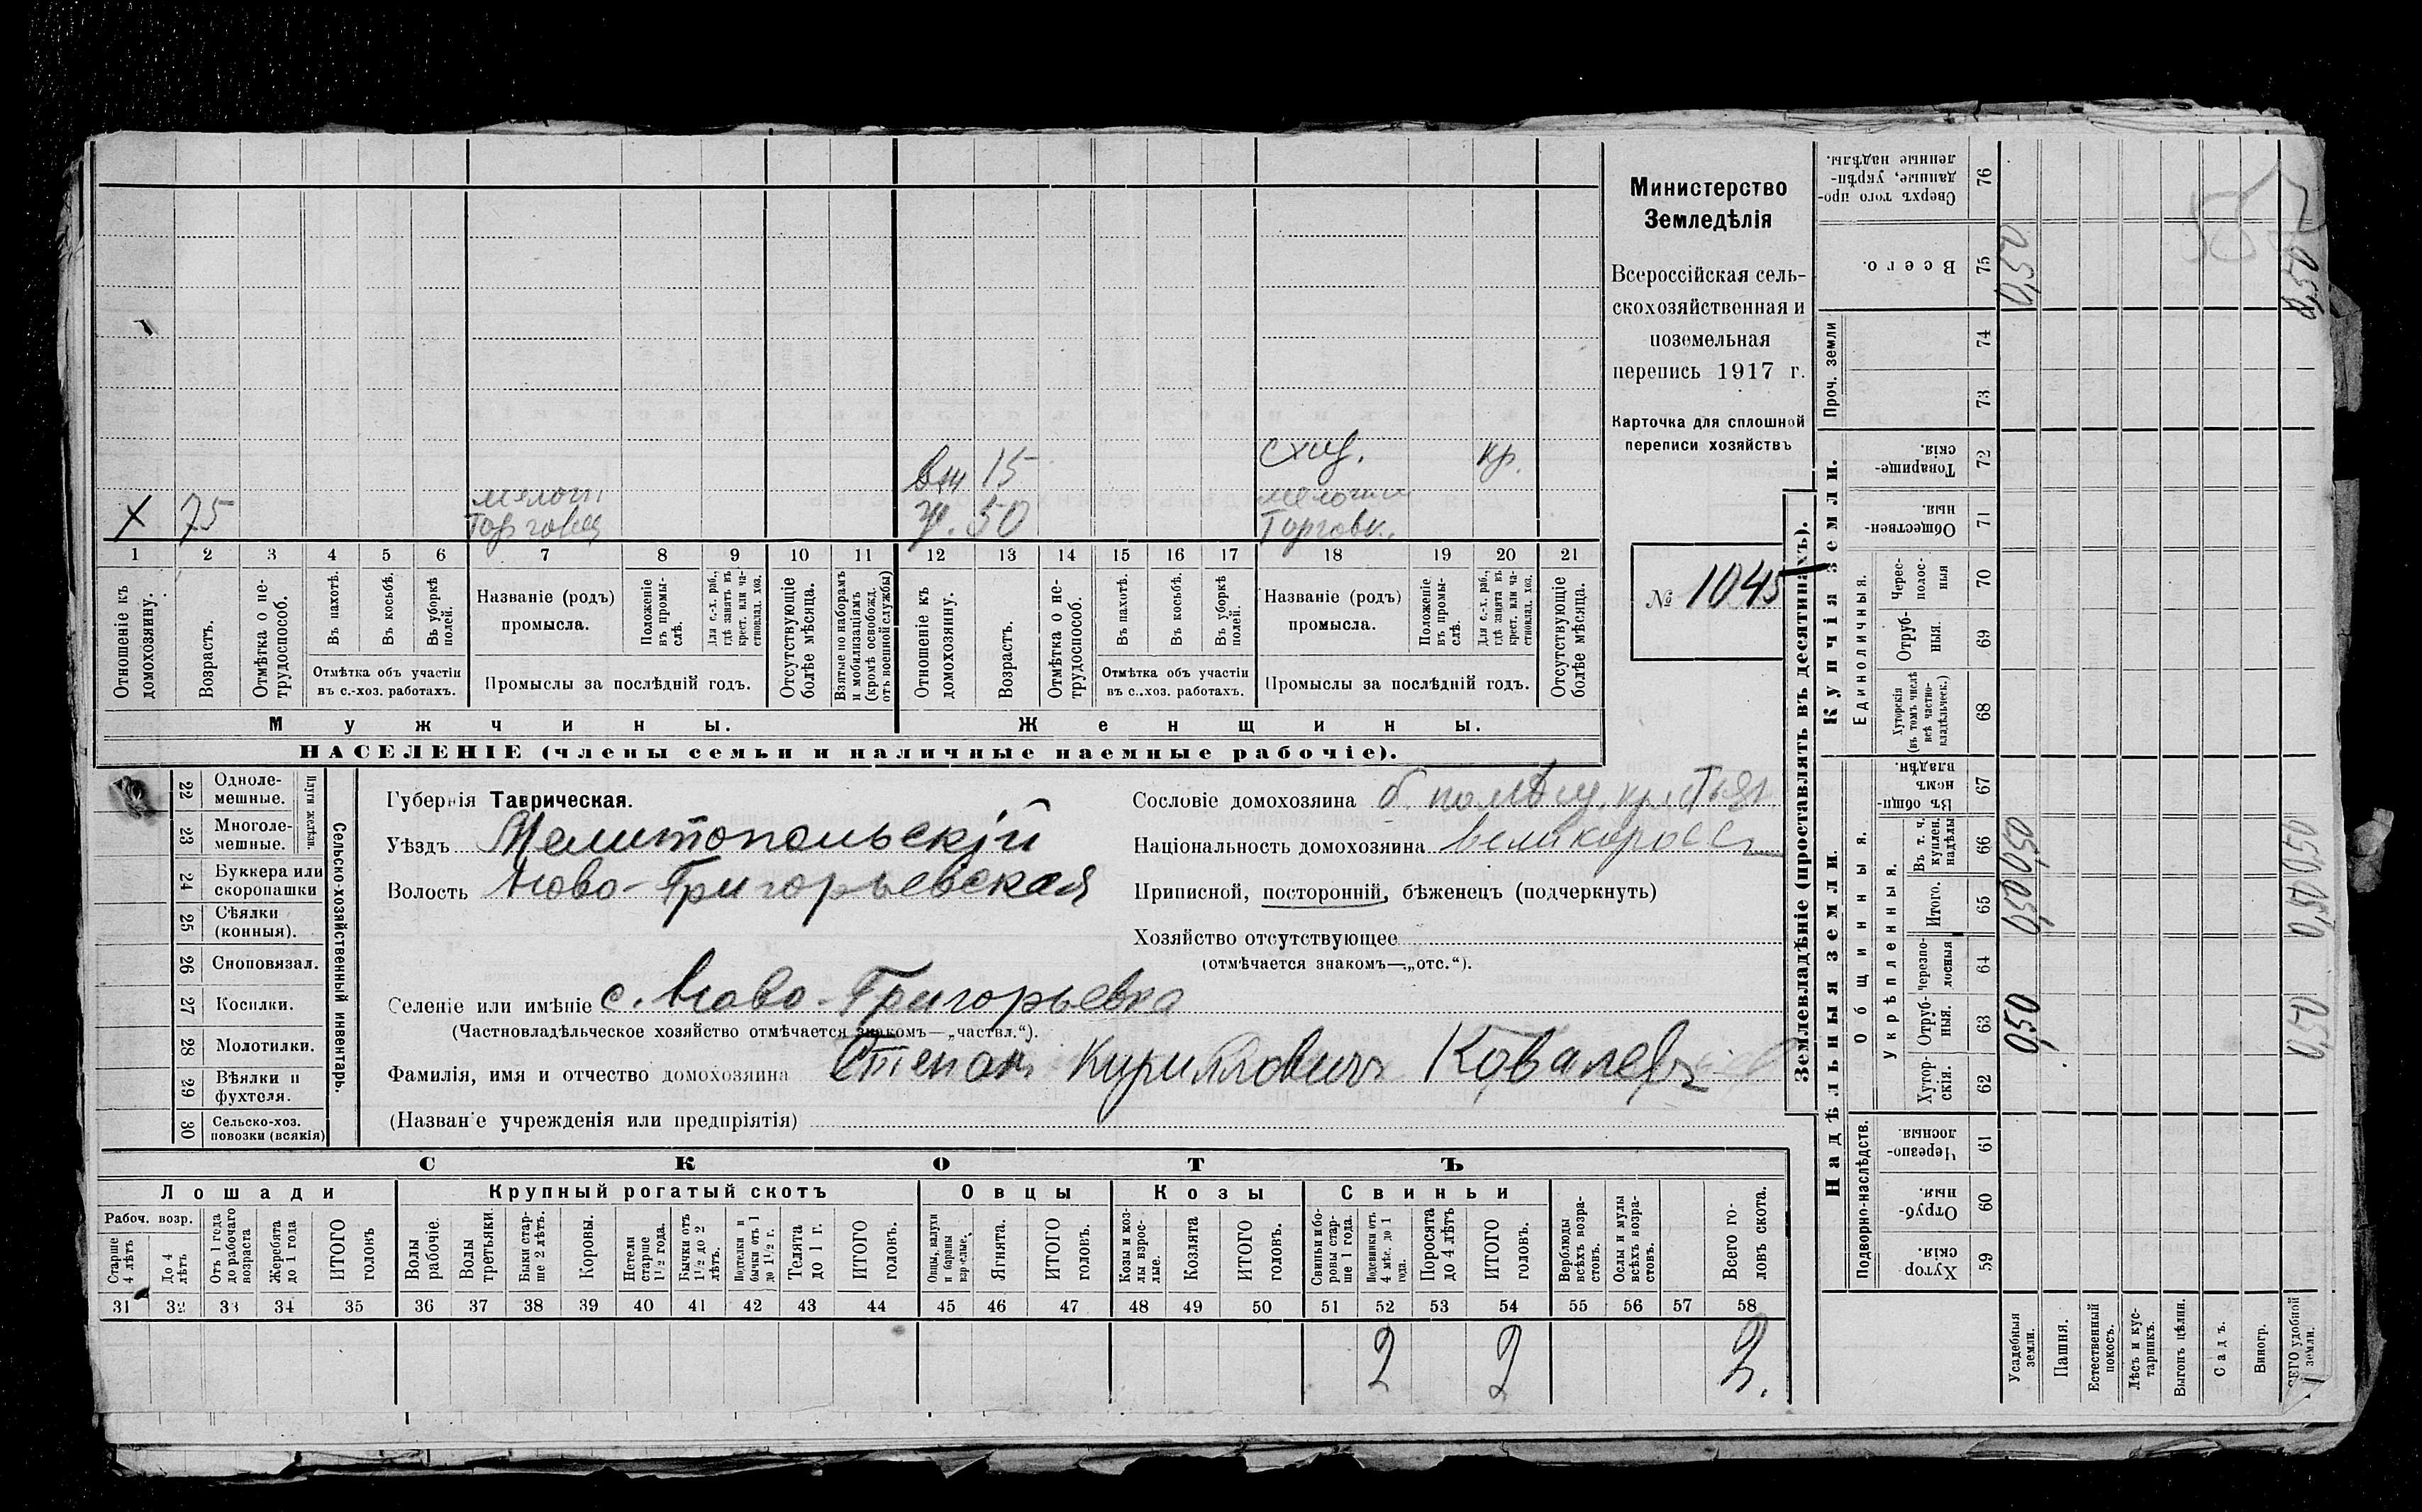 Министерство
Земледѣлія
Всероссійская сель-
скохозяйственная и
поземельная
перепись 1917 г.
Карточка для сплошной
переписи хозяйствъ
№ 1045
вн 15 схид. кр.
Х 75 мелочн. ж. 50 мелочн.
торговец торговк.
1 2 3 4 5 6 7 8 9 10 11 12 13 14 15 16 17 18 19 20 21
Отношеніе къ домохозяину.
Возрастъ.
Отмѣтка о не-трудоспособ.
Въ пахотѣ.
Въ косьбѣ.
Въ уборкѣ полей.
Отмѣтка объ участіи
въ с.-хоз. работахъ.
Названіе (родъ)
промысла.
Положеніе въ промы-слѣ.
Для с.-х. раб., гдѣ занятъ въ крест. или ча-стновлад. хоз.
Промыслы за послѣдній годъ.
Отсутствующіе болѣе мѣсяца.
Взятые по наборамъ и мобилизаціямъ (кромѣ освобожд. отъ военной службы)
Отношеніе къ домохозяину.
Возрастъ.
Отмѣтка о не-трудоспособ.
Въ пахотѣ.
Въ косьбѣ.
Въ уборкѣ полей.
Отмѣтка объ участіи
въ с..хоз. работахъ.
Названіе (родъ)
промысла.
Положеніе въ промы-слѣ.
Для с.-х. раб., гдѣ занята въ крест. или ча-стновлад. хоз.
Промыслы за послѣдній годъ.
Отсутствующіе болѣе мѣсяца.
Мужчины. Женщины.
НАСЕЛЕНІЕ (члены семьи и наличные наемные рабочіе).
Сельско-хозяйственный инвентарь.
Плуги желѣзн.
22 Одноле-мешные.
23 Многоле-мешные.
24 Буккера или скоропашки
25 Сѣялки (конныя).
26 Сноповязал.
27 Косилки.
28 Молотилки.
29 Вѣялки и фухтеля.
30 Сельско-хоз. повозки (всякія)
Губернія Таврическая.
Уѣздъ Мелитопольскій
Волость Ново-Григорьевская
Селеніе или имѣніе с. Ново-Григорьевка
(Частновладѣльческое хозяйство отмѣчается знакомъ—„частвл.“).
Фамилія, имя и отчество домохозяина Степанъ Кирилловичъ Ковалевъ
(Названіе учрежденія или предпріятія)
Сословіе домохозяина б. помѣщ. крестьян
Національность домохозяина великороссъ
Приписной, посторонній, бѣженецъ (подчеркнуть)
Хозяйство отсутствующее
(отмѣчается знакомъ—„отс.“).
СКОТЪ
Лошади Крупный рогатый скотъ Овцы Козы Свиньи
Рабоч. возр.
Старше 4 лѣтъ
До 4 лѣтъ
Отъ 1 года до рабочаго возраста
Жеребята до 1 года
ИТОГО головъ
Волы рабочіе.
Волы третьяки.
Быки стар-ше 2 лѣтъ.
Коровы.
Нетели старше 1 1/2 года.
Бычки отъ 1 1/2 до 2 лѣтъ.
Подтелки и бычки отъ 1 до 1 1/2 г.
Телята до 1 г.
ИТОГО головъ.
Овцы, валухи и бараны взрослые.
Ягнята.
ИТОГО головъ.
Козы и коз-лы взрос-лые.
Козлята
ИТОГО головъ.
Свиньи и бо-ровы стар-ше 1 года.
Подсвинки отъ 4 мѣс. до 1 года.
Поросята до 4 лѣтъ
ИТОГО головъ.
Верблюды всѣхъ возра-стовъ.
Ослы и мулы всѣхъ возра-стовъ.
Всего го-ловъ скота.
31 32 33 34 35 36 37 38 39 40 41 42 43 44 45 46 47 48 49 50 51 52 53 54 55 56 57 58
2 2 2.
Землевладѣніе (проставлять въ десятинахъ).
Купчія земли.
Надѣльныя земли.
Проч. земли
Единоличныя.
Общинныя.
Укрѣпленныя.
Подворно-наслѣдств.
Сверхъ того про-данные, укрѣп-ленные надѣлы. 76
Всего. 75 0,50 0,50
74
73
Товарище-скія. 72
Обществен-ныя. 71
Черес-полос-ныя 70
Отруб-ныя. 69
Хуторскія (въ томъ числѣ всѣ частно-владѣльческ.) 68
Въ общин-номъ владѣн. 67
Въ т. ч. куплен. надѣлы 66 0,50 0,50
Итого. 65 0,50 0,50
Черезпо-лосныя 64
Отруб-ныя. 63 0,50 0,50
Хутор-скія. 62
Черезпо-лосныя. 61
Отруб-ныя. 60
Хутор-скія. 59
Усадебныя земли.
Пашня.
Естественный покосъ.
Лѣсъ и кус-тарникъ.
Выгонъ цѣлин.
Садъ.
Виногр.
ВСЕГО удобной земли.